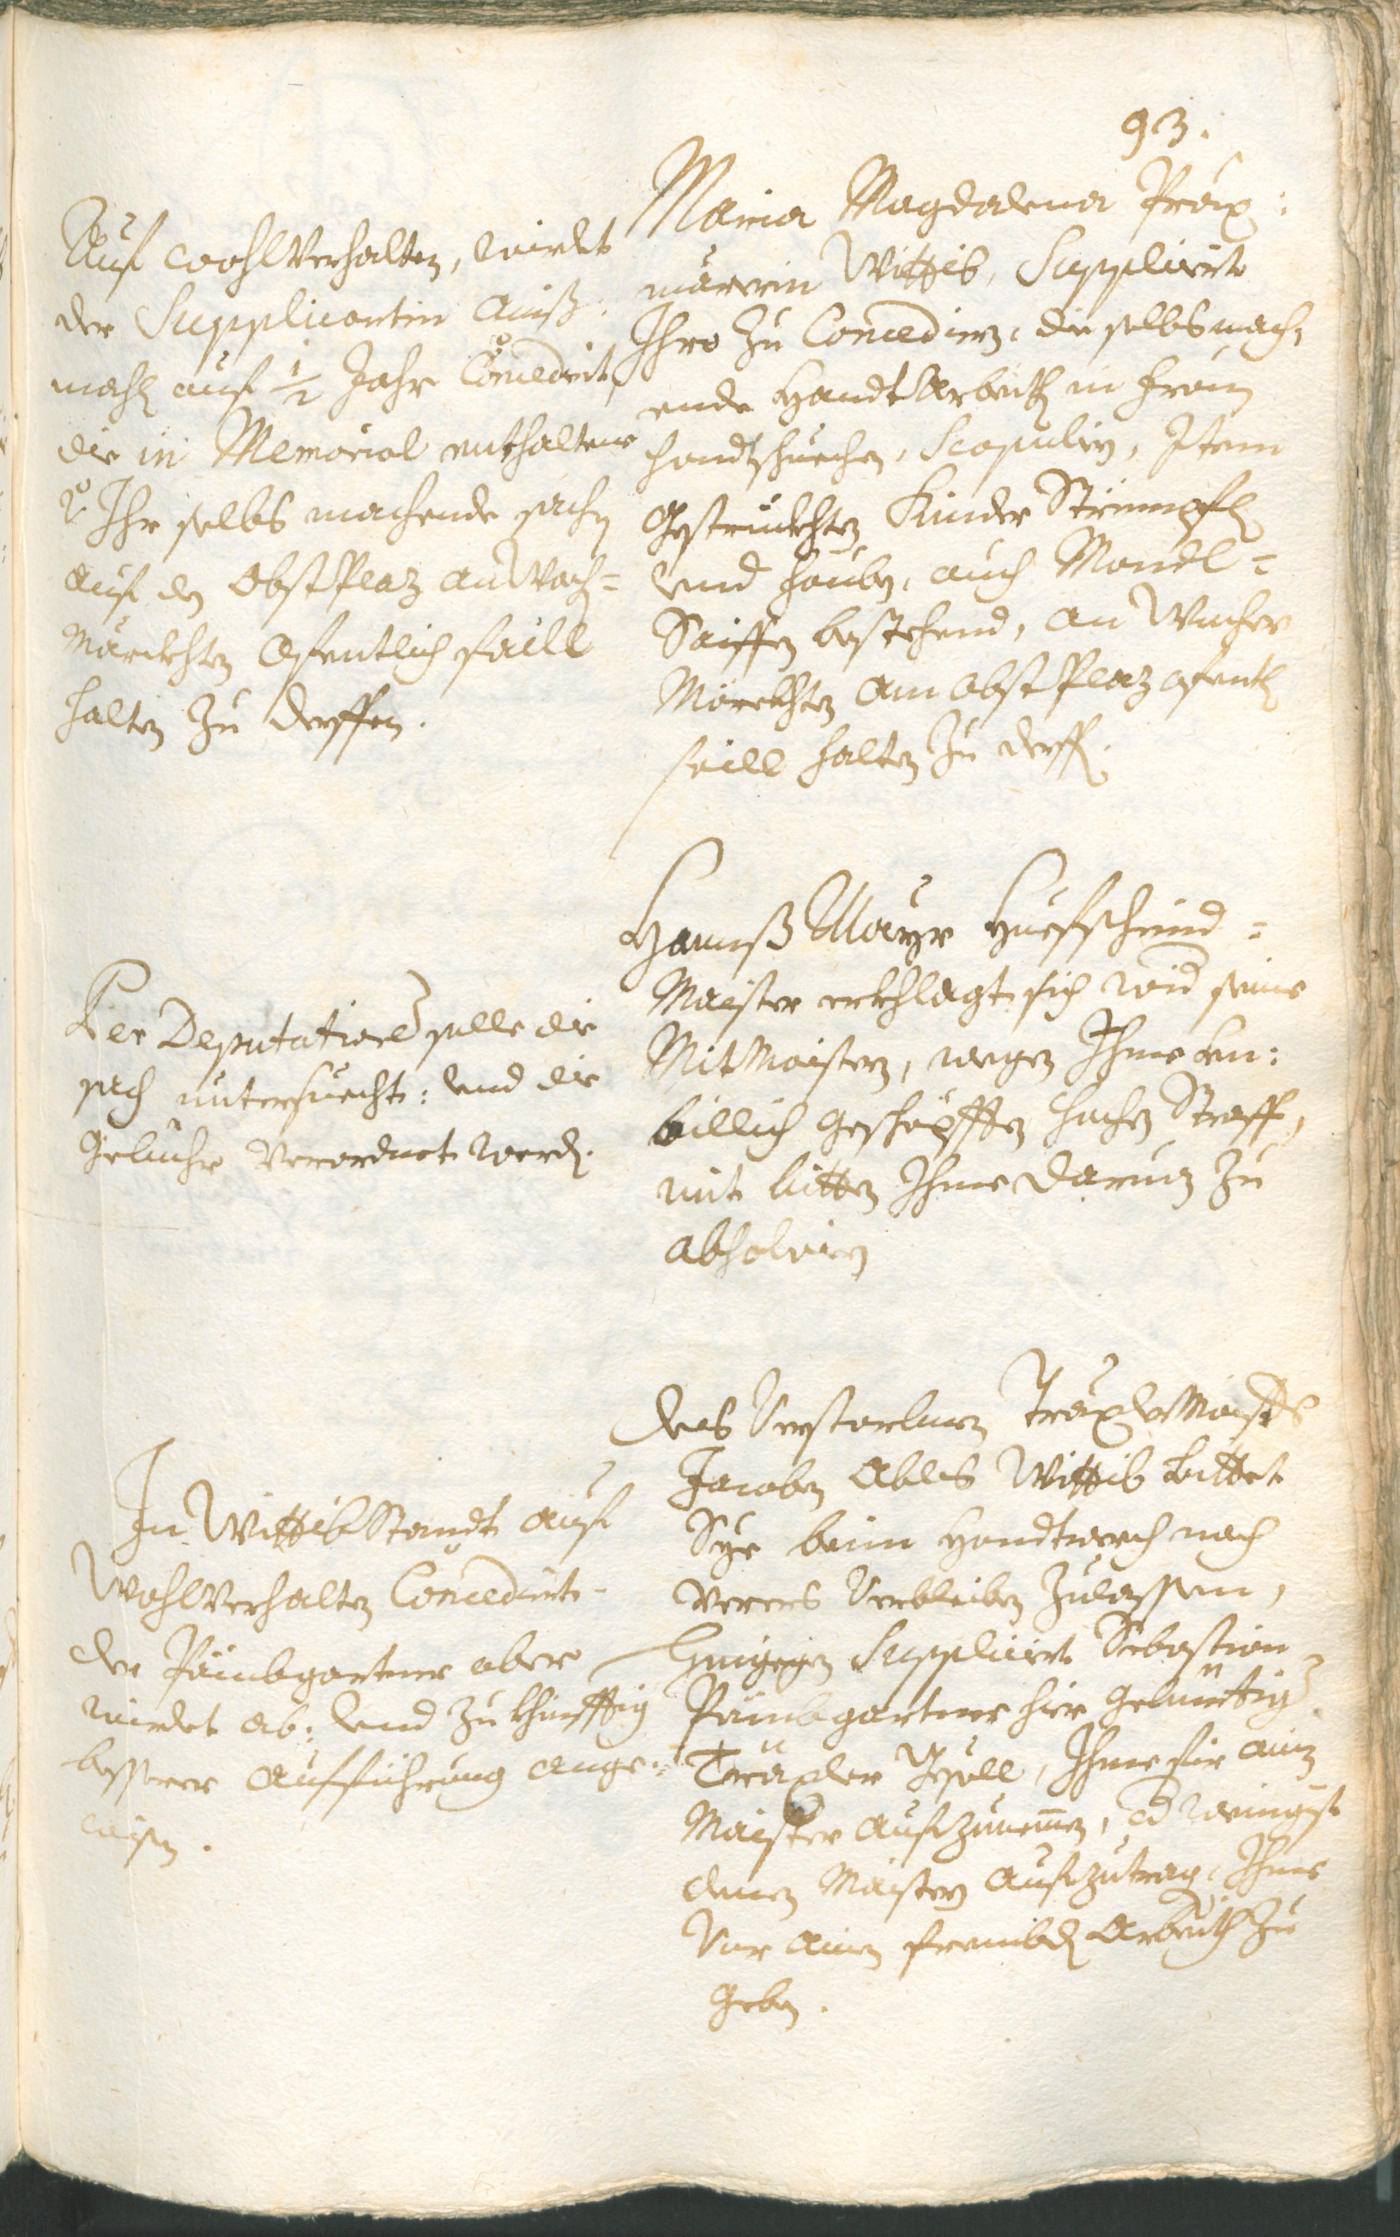 93.
Maria Magdalena Präx:
märerin Wittib, Supplicirt
Ihro Zu Concedirn, die selbs mach,
ende Handt Arbeith in
handtschuechen, Scapulirn, Item
Gestrickhten Kinder Strümpfl
und hauben, auch Mandl=
Saiffen bestehend, an Wochen
Märckhten am obst Plaz ofentl
faill halten Zu derffen.
Auf wohlVerhalten, wirdet
der Supplicantin
mahl auf 1/2 Jahr Concedirt,
die in Memorial enthaltene
v. Ihr selbs machende sachen
auf den Obst Plaz an Woch=
Märckhten Ofentlich faill
halten Zu derffen.
Hannß Mayr Huefschmid=
Maister erkhlagt sich wider seine
MitMaistern, wegen Ihme Un:
billich Geschöpfften hochen Straff,
mit bitten Ihme darvon Zu
absolvirn
Per Deputationes solle die
sach untersuecht: und die
Gebühr Verordnet werden.
Des Verstorbenen Träxler Maisters
Jacoben Abls Wittib bittet
Sye beim Handtwerch noch
Verers Verbleiben Zulassen,
Hingegen Supplicirt Sebastian
Pämbgartner hier Gebürtiger
Träxler Gsöll, Ihme für ainen
Maister aufzunemmen, od wenigist
denen Maistern aufzutragen, Ihme
Vor ainen frembden Arbeith Zu
Geben.
In Wittib Standt auf
WohlVerhalten Concedirt.
der Pämbgartner aber
wirdet ab: und Zu khinfftig
besserer Aufführung ange=
wisen.